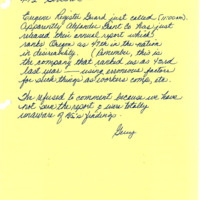 Eugene Register Guard just called (11:00 am).
Apparently Alexander Grant Co has just
released their annual report which
ranks Oregon as 47th in the nation
in desirability. (Remember, this is
the company that ranked us as 43rd
last year — using erroneous factors
for such things as workers comp, etc.
I've refused to comment because we have
not seen the report & were totally
unaware of its findings.
Gerry